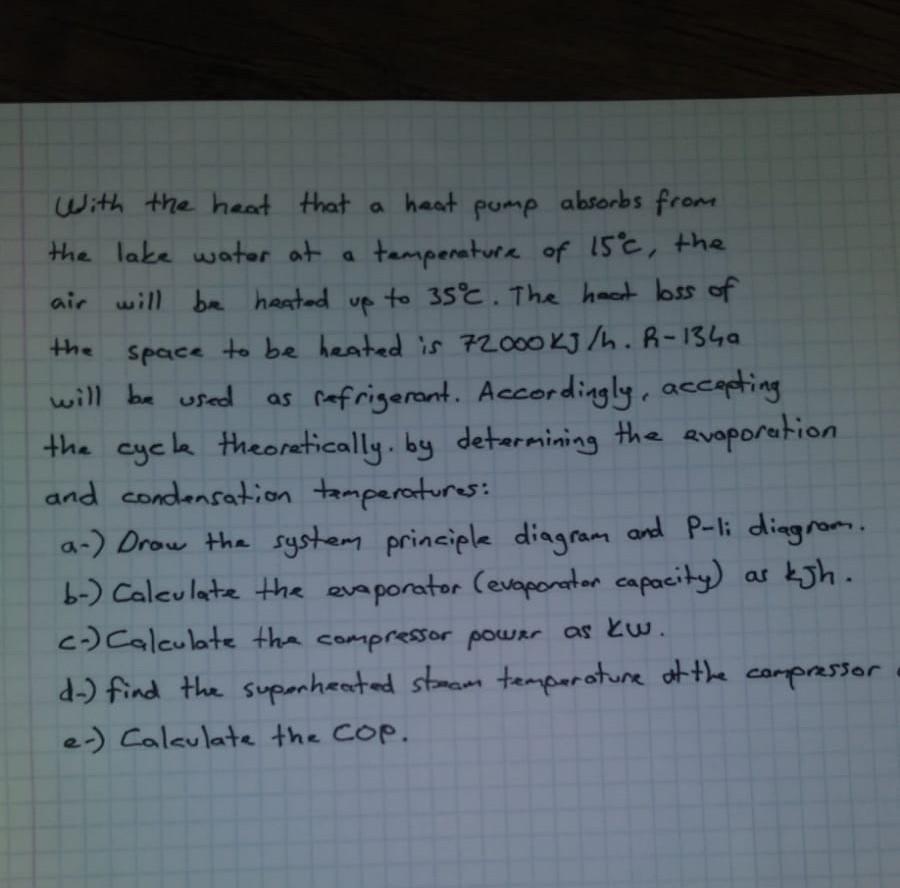 With the heat that a heat pump absorbs from
the lake water at a temperature of 15°C, the
air will be heated up to 35°C. The heat loss of
the space to be heated is 72000 kJ/h. R-134a
will be used as refrigerant. Accordingly, accepting
the cycle theoretically. by determining the evaporation
and condensation temperatures:
a-) Draw the system principle diagram and P-h diagram.
b-) Calculate the evaporator (evaporator capacity) as kJh.
c-) Calculate the compressor power as kW.
d-) find the superheated steam temperature at the compressor
e-) Calculate the COP.